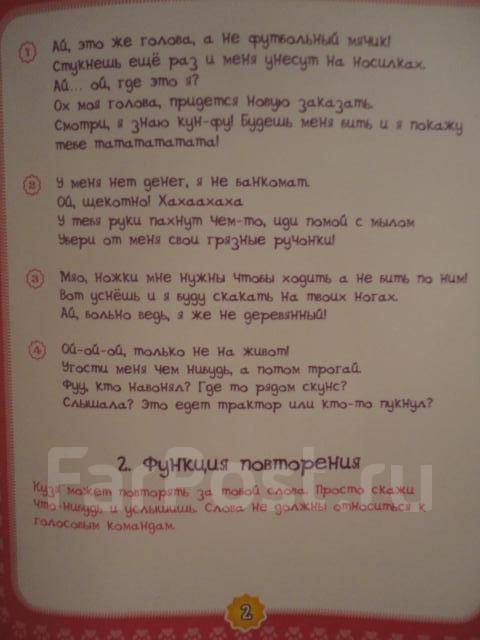 1 Ай, это же голова, а не футбольный мячик!
Стукнешь ещё раз и меня унесут на носилках.
Ай... ой, где это я?
Ох моя голова, придется новую заказать.
Смотри, я знаю кун-фу! Будешь меня бить и я покажу
тебе татататата!
2 У меня нет денег, я не банкомат.
Ой, щекотно! Хахаахаха
У тебя руки пахнут чем-то, иди помой с мылом
Убери от меня свои грязные ручонки!
3 Мяо, ножки мне нужны чтобы ходить а не бить по ним!
Вот уснёшь и я буду скакать на твоих ногах.
Ай, больно ведь, я же не деревянный!
4 Ой-ой-ой, только не на живот!
Угости меня чем нибудь, а потом трогай.
Фуу, кто навонял? Где то рядом скунс?
Слышала? Это едет трактор или кто-то пукнул?
2. Функция повторения
FarPost.ru
Кузя может повторять за тобой слова. Просто скажи
что-нибудь и услышишь. Слова не должны относиться к
голосовым командам.
2